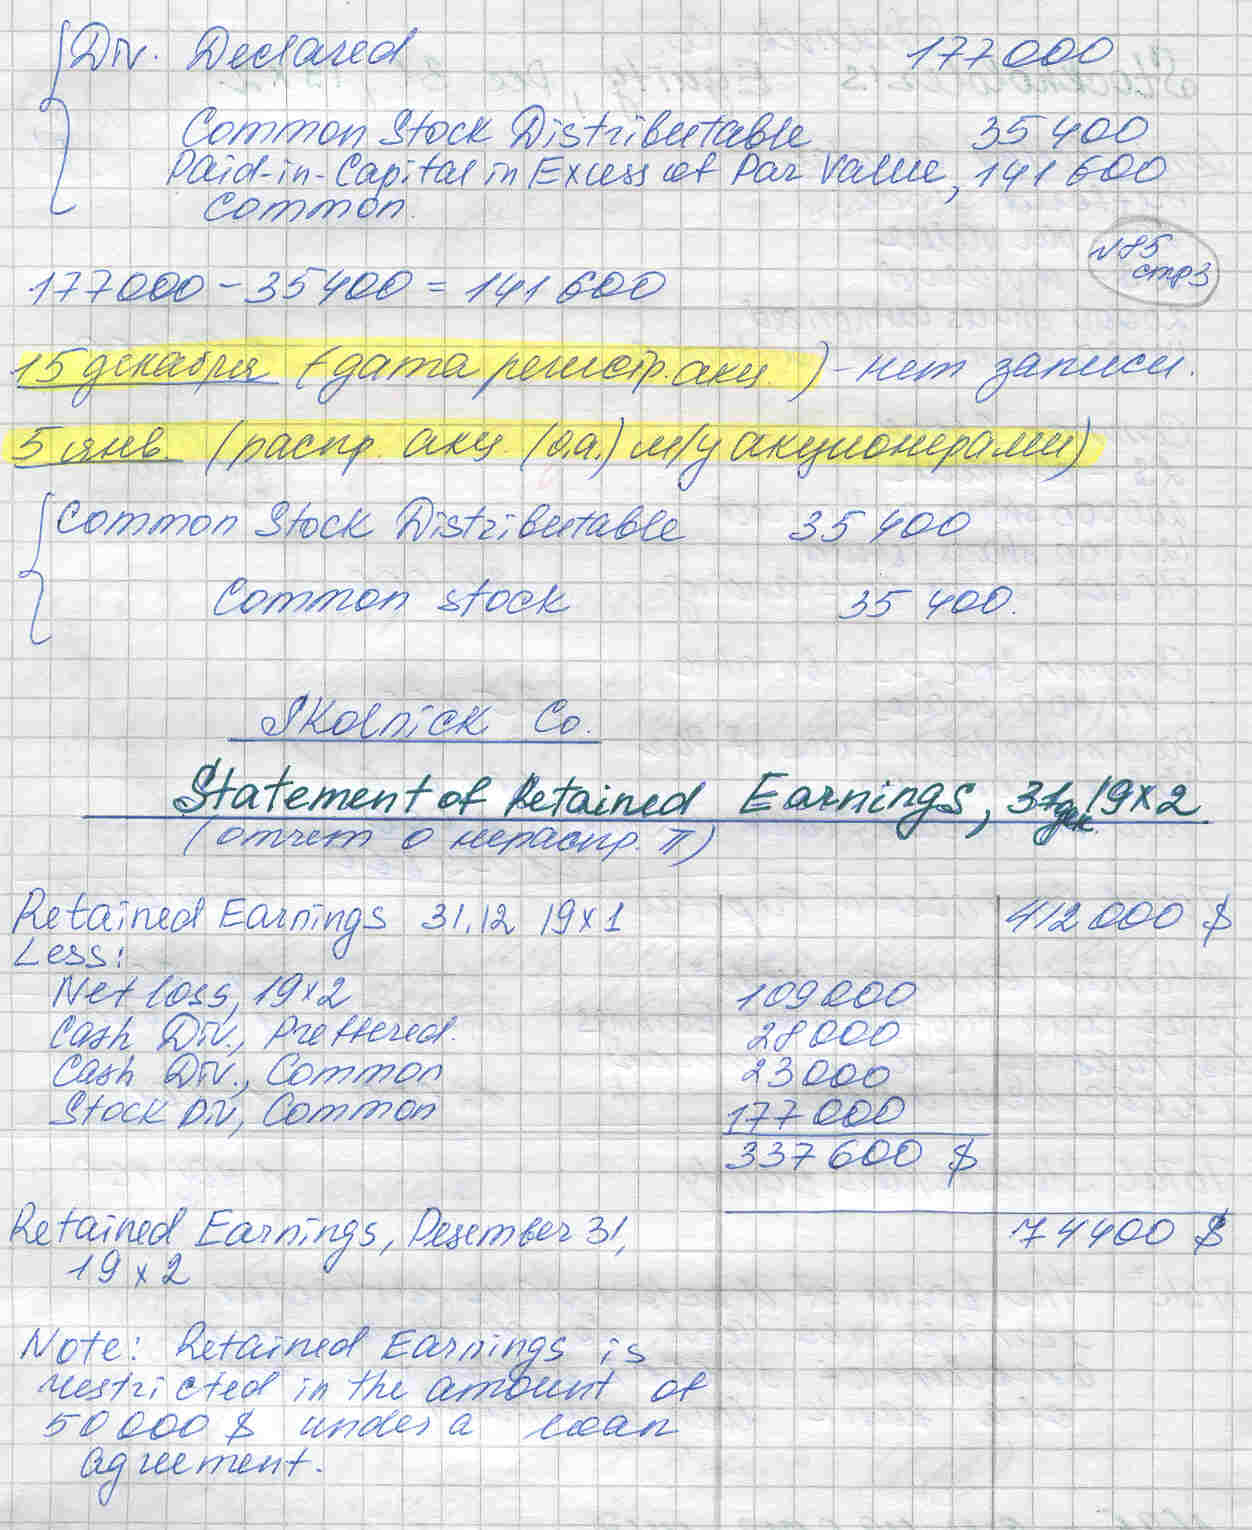 Div. Declared 177000
Common Stock Distributable 35400
Paid-in-Capital in Excess of Par Value, 141600
Common.
№85
стр3
177000 - 35400 = 141600
15 декабря (дата регистр. акц.) - нет записи.
5 янв. (распр. акц. (о.а.) м/у акционерами)
Common Stock Distributable 35400
Common stock 35400.
Skolnick Co.
Statement of Retained Earnings, 31 дек. 19x2
(отчет о нераспр. П)
Retained Earnings 31.12 19x1 412000 $
Less:
Net loss, 19x2 109000
Cash Div., Preffered. 28000
Cash Div., Common 23000
Stock Div, Common 177000
337600 $
Retained Earnings, Desember 31, 74400 $
19x2
Note: Retained Earnings is
restricted in the amount of
50000 $ under a loan
agreement.